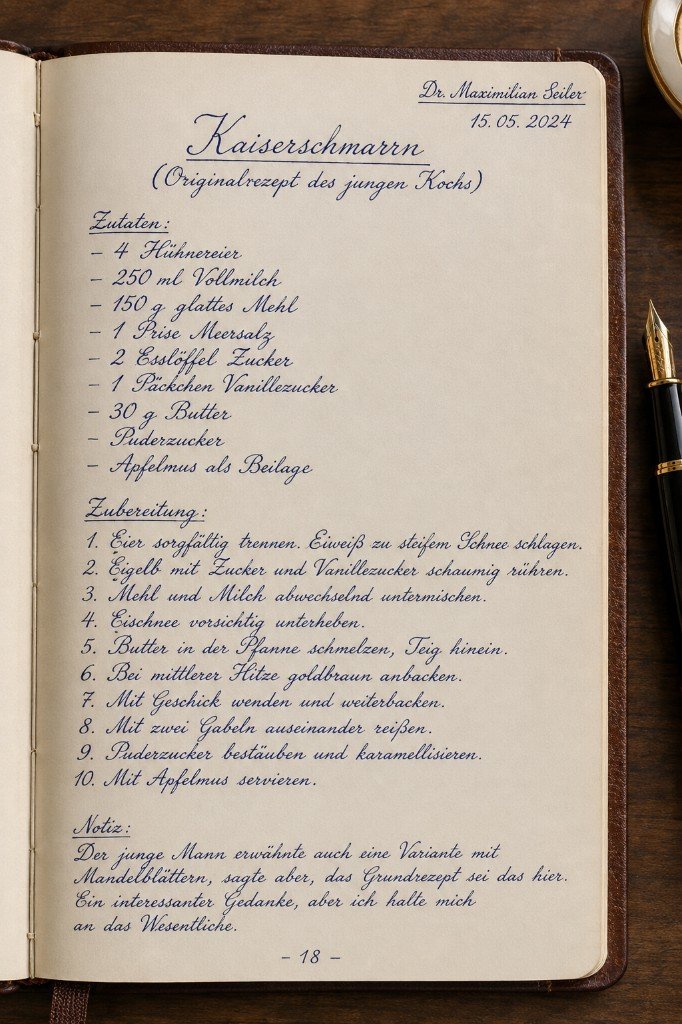 Dr. Maximilian Seiler
15.05.2024
Kaiserschmarrn
(Originalrezept des jungen Kochs)
Zutaten:
– 4 Hühnereier
– 250 ml Vollmilch
– 150 g glattes Mehl
– 1 Prise Meersalz
– 2 Esslöffel Zucker
– 1 Päckchen Vanillezucker
– 30 g Butter
– Puderzucker
– Apfelmus als Beilage
Zubereitung:
1. Eier sorgfältig trennen. Eiweiß zu steifem Schnee schlagen.
2. Eigelb mit Zucker und Vanillezucker schaumig rühren.
3. Mehl und Milch abwechselnd untermischen.
4. Eischnee vorsichtig unterheben.
5. Butter in der Pfanne schmelzen, Teig hinein.
6. Bei mittlerer Hitze goldbraun anbacken.
7. Mit Geschick wenden und weiterbacken.
8. Mit zwei Gabeln auseinander reißen.
9. Puderzucker bestäuben und karamellisieren.
10. Mit Apfelmus servieren.
Notiz:
Der junge Mann erwähnte auch eine Variante mit
Mandelblättern, sagte aber, das Grundrezept sei das hier.
Ein interessanter Gedanke, aber ich halte mich
an das Wesentliche.
– 18 –